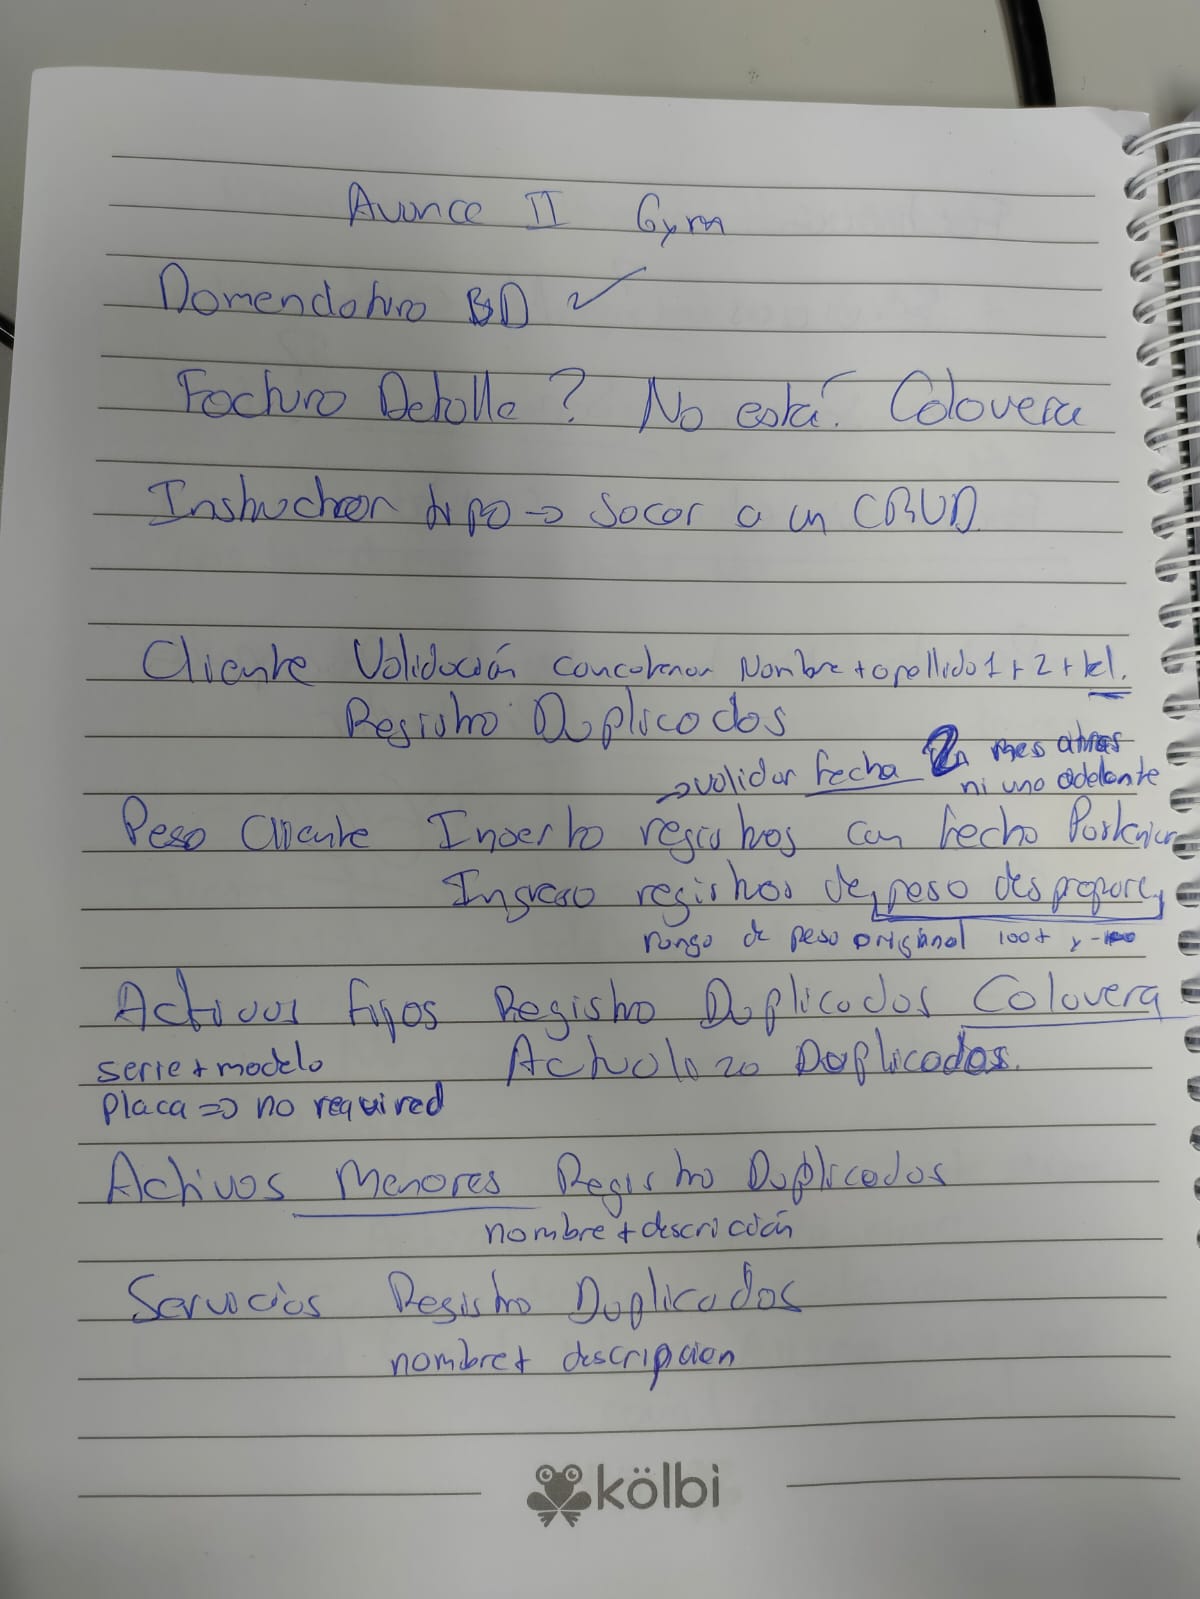 Avance II Gym
Nomenclatura BD ✓
Factura Detalle ? No está. Calavera
Instructor tipo → Sacar a un CRUD.
Cliente Validación concatenar Nombre + apellido 1 + 2 + tel.
Registro Duplicados
→ validar fecha 2 mes atras
ni uno adelante
Peso Cliente Inserto registros con fecha Posterior
Ingreso registros de peso desproporc
rango de peso original 100+ y -100
Activos fijos Registro Duplicados Calavera
serie + modelo Actualizo Duplicados.
placa => no required
Activos Menores Registro Duplicados
nombre + descrición
Servicios Registro Duplicados
nombre + descripcien
kölbi